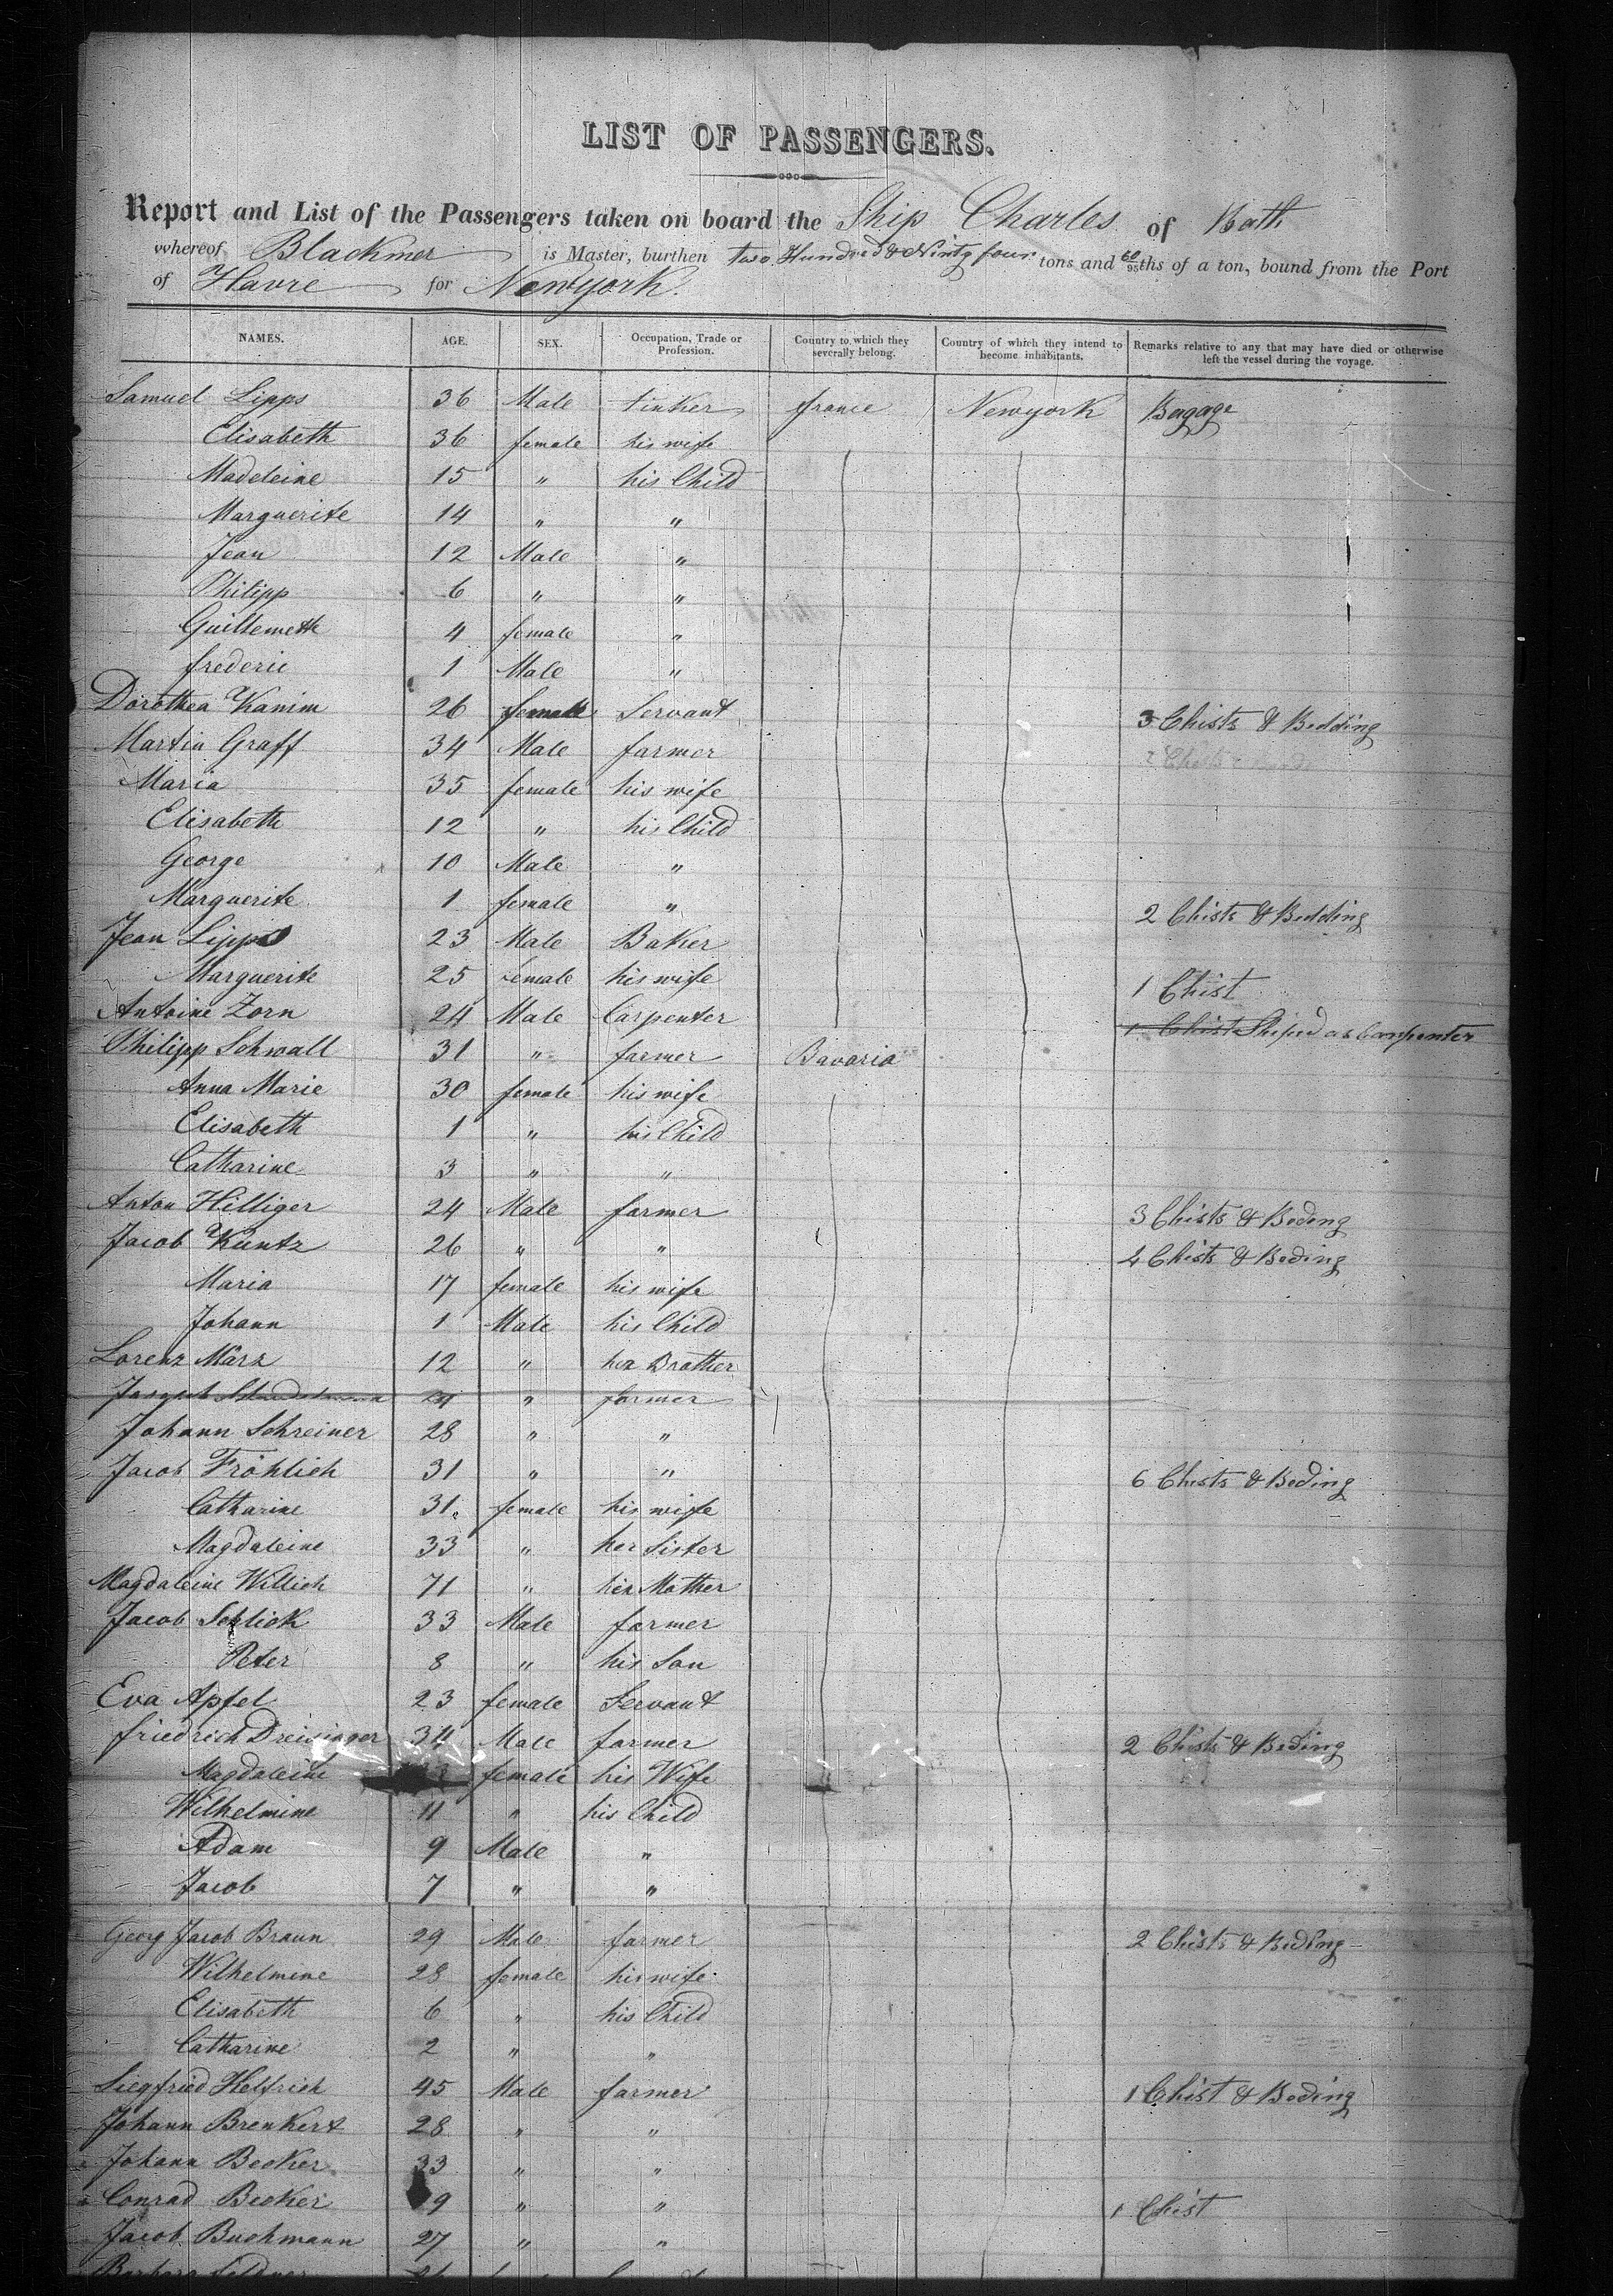 LIST OF PASSENGERS.
Report and List of the Passengers taken on board the Ship Charles of Bath
whereof Blackmer is Master, burthen two Hundred & Ninty four tons and 60/95ths of a ton, bound from the Port
of Havre for Newyork.
NAMES. AGE. SEX. Occupation, Trade or Profession. Country to which they severally belong. Country of which they intend to become inhabitants. Remarks relative to any that may have died or otherwise left the vessel during the voyage.
Samuel Lipps 36 Male tinker france Newyork Bagage
Elisabeth 36 female his wife
Madeleine 15 " his Child
Marguerite 14 " "
Jean 12 Male "
Philipp 6 " "
Guillemette 4 female "
frederic 1 Male "
Dorothea Kanim 26 female Servant 3 Chists & Bedding
Martin Graff 34 Male farmer 2 Chists
Maria 35 female his wife
Elisabeth 12 " his Child
George 10 Male "
Marguerite 1 female " 2 Chists & Bedding
Jean Lipps 23 Male Baker
Marguerite 25 female his wife 1 Chist
Antoine Zorn 24 Male Carpenter 1 Chist Shiped as Carpenter
Philipp Schwall 31 " farmer Bavaria
Anna Marie 30 female his wife
Elisabeth 1 " his Child
Catharine 3 " "
Anton Hilliger 24 Male farmer 3 Chists & Beding
Jacob Kuntz 26 " " 4 Chists & Beding
Maria 17 female his wife
Johann 1 Male his Child
Lorenz März 12 " her Brother
24 " farmer
Johann Schreiner 28 " "
Jacob Fröhlich 31 " " 6 Chists & Beding
Catharine 31 female his wife
Magdaleine 33 " her Sister
Magdaleine Willich 71 " her Mother
Jacob Schlick 33 Male farmer
Peter 8 " his Son
Eva Apfel 23 female Servant
friedrich Dreisinger 34 Male farmer 2 Chists & Beding
Magdaleine female his Wife
Wilhelmine 11 " his Child
Adam 9 Male "
Jacob 7 " "
Georg Jacob Braun 29 Male farmer 2 Chists & Beding
Wilhelmine 28 female his wife
Elisabeth 6 " his Child
Catharine 2 " "
Siegfried Helfrich 45 Male farmer 1 Chist & Beding
Johann Brenkert 28 " "
Johann Becker 33 " "
Conrad Becker 9 " " 1 Chist
Jacob Buchmann 27 " "
Barbara